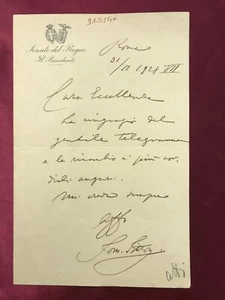 Senato del Regno
Il Presidente
Roma
31/12 1928 VII
Cara Eccellenza
La ringrazio del
gentile telegramma
e le ricambio i più cor
diali auguri.
Mi creda sempre
aff
Tom.
atti